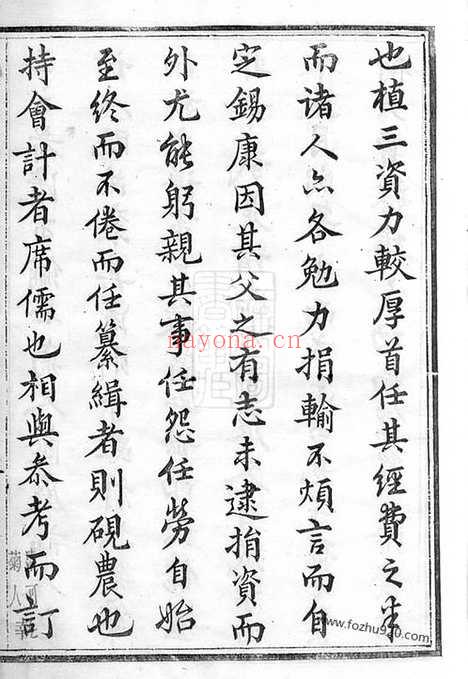 也植三資力較厚首任其經費之半
而诸人亦各勉力捐輸不煩言而自
定錫康因其父之有志未逮捐資而
外尤能躬親其事任怨任勞自始
至终而不倦而任纂緝者則硯農也
持會計者席儒也相與参考而訂
nayona.cn
www.fozhu920.com